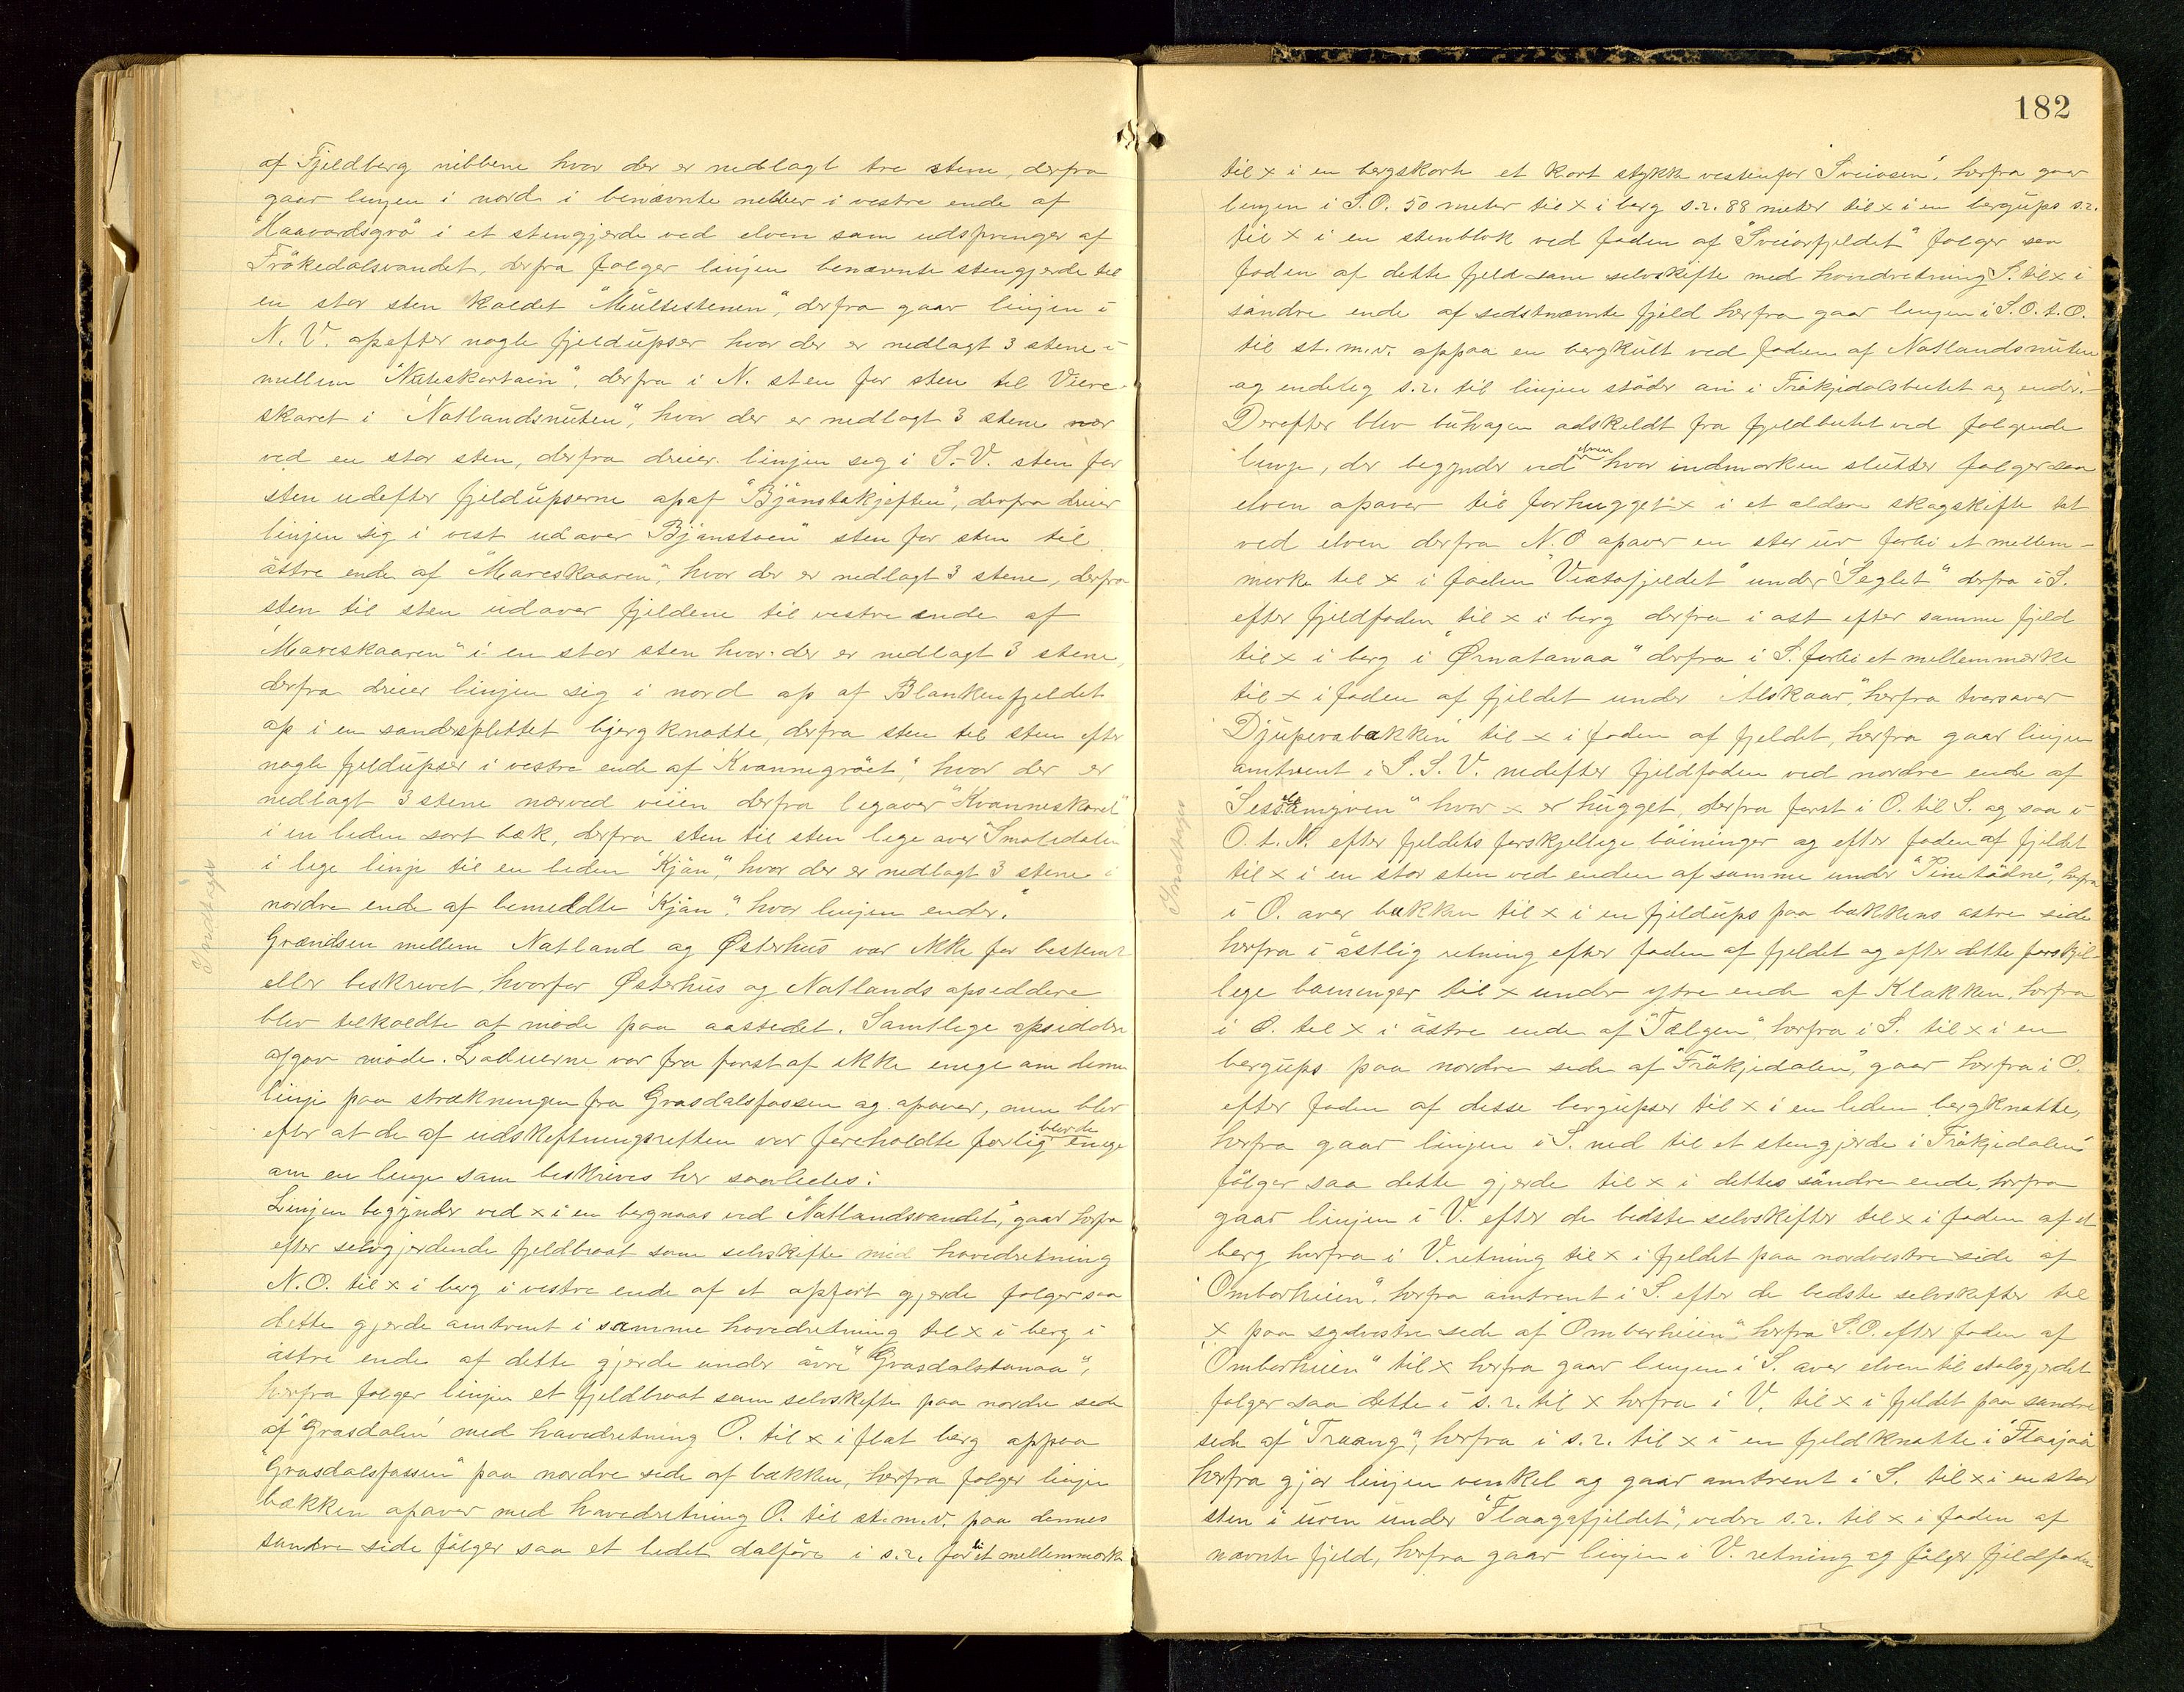 af Fjeldberg nibbene hvor der er nedlagt tre stene, derfra
gaar linjen i nord i benævnte nibber i vestre ende af
"Haavardsgrø" i et stengjerde ved elven som udspringer af
Frøkedalsvandet, derfra følger linjen benævnte stengjerde til
en stor sten kaldet "Multestenen", derfra gaar linjen i
N. V. opefter nogle fjeldupser hvor der er nedlagt 3 stene i
mellem "Nuteskortain", derfra i N. sten for sten til Viere-
skaret i "Natlandsnuten", hvor der er nedlagt 3 stene nær
ved en stor sten, derfra dreier linjen seg i S.-V. sten for
sten udefter fjeldupserne opaf "Bjønstøkjeften", derfra dreier
linjen sig i vest udover "Bjønstøen" sten for sten til
østre ende af "Mareskaaren", hvor der er nedlagt 3 stene, derfra
sten til sten udover fjeldene til vestre ende af
"Mareskaaren" i en stor sten hvor der er nedlagt 3 stene,
derfra dreier linjen sig i nord op af Blankenfjeldet
op i en søndersplittet bjergknatte, derfra sten til sten efter
nogle fjeldupser i vestre ende af "Kvannegrøet", hvor der er
nedlagt 3 stene nærved veien derfra ligeover "Kvanneskaret"
i en liden sort bæk, derfra sten til sten lige over Smaledalen
i lige linje til en liden "Kjøn", hvor der er nedlagt 3 stene i
nordre ende af bemeldte "Kjøn", hvor linjen ender."
Grændsen mellem Natland og Østerhus var ikke før bestemt
eller beskrevet, hvorfor Østerhus og Natlands opsiddere
blev tilkaldte at møde paa aastedet. Samtlige opsiddere
afgav møde. Lodeierne var fra først af ikke enige om denne
linje paa strækningen fra Grasdalsfossen og opover, men blev
efter at de af udskiftningsretten var foreholdte forlig blev de enige
om en linje som beskrives her saaledes:
Linjen begynder ved x i en bergnaas ved "Natlandsvandet", gaar herfra
efter selvgjerdende fjeldbraat som selvskifte med hovedretning
N.O. til x i berg i vestre ende af et opført gjerde følger saa
dette gjerde omtrent i samme hovedretning til x i berg i
østre ende af dette gjerde under øvre "Grasdalstanaa",
herfra følger linjen et fjeldbraat som selvskifte paa nordre side
af "Grasdalen" med hovedretning O. til x i flat berg oppaa
"Grasdalsfossen" paa nordre side af bækken, herfra følger linjen
bækken opover med hovedretning O. til st.m.v. paa dennes
søndre side følger saa et lidet dalføre i s.r. forbi et mellemmærke
Indtages
182
til x i en bergskorte et kort stykke vestenfor "Sveiosen", herfra gaar
linjen i S.O. 50 meter til x i berg s.r. 88 meter til x i en bergups s.r.
til x i en stenblok ved foden af "Sveiorfjeldet" følger saa
foden af dette fjeld som selvskifte med hovedretning S. til x i
søndre ende af sidstnævnte fjeld herfra gaar linjen i S.O.t.O.
til st.m.v. oppaa en bergkult ved foden af Natlandsnuten
og endelig s.r. til linjen støder an i Frøkjedalsbeitet og ender.-
Derefter blev buhagen adskildt fra fjeldbeitet ved følgende
linje, der begynder ved elven hvor indmarken slutter følger saa
elven opover til forhugget x i et ældre skogskifte tæt
ved elven derfra N.O opover en stor ur forbi et mellem-
mærke til x i foden "Viatofjeldet" under "Seglet" derfra i S.
efter fjeldfoden til x i berg derfra i øst efter samme fjeld
til x i berg i "Ørnatanaa" derfra i S. forbi et mellemmærke
til x i foden af fjeldet under "Alskaar", herfra tversover
"Djupevabækken" til x i foden af fjeldet, herfra gaar linjen
omtrent i S.S.V. nedefter fjeldfoden ved nordre ende af
hvor x er hugget, derfra først i O. til S. og saa i
O.t.N. efter fjeldets forskjellige bøininger og efter foden af fjeldet
til x i en stor sten ved enden af samme under herfra
i O. over bækken til x i en fjeldups paa bækkens østre side
herfra i østlig retning efter foden af fjeldet og efter dette forskjel-
lige bøininger til x under ytre ende af Klakken, herfra
i O. til x i østre ende af "Tælgen" herfra i S. til x i en
bergups paa nordre side af "Frøkjedalen", gaar herfra i O.
efter foden af disse bergupser til x i en liden bergknatte,
herfra gaar linjen i S. ned til et stengjerde i "Frøkjedalen"
følger saa dette gjerde til x i dettes søndre ende, herfra
gaar linjen i V. efter de bedste selvskifter til x i foden af et
berg herfra i V. retning til x i fjeldet paa nordvestre side af
"Omborheien", herfra omtrent i S. efter de bedste selvskifter til
x paa sydvestre side af "Omborheien" herfra S.O. efter foden af
"Omborheien" til x herfra gaar linjen i S. over elven til stølsgjerdet
følger saa dette i s.r. til x herfra i V. til x i fjeldet paa søndre
side af "Traang", herfra i s.r. til x i en fjeldknatte i "Flaajaa"
herfra gjør linjen vinkel og gaar omtrent i S. til x i en stor
sten i uren under "Flaagafjeldet", videre s.r. til x i foden af
nævnte fjeld, herfra gaar linjen i V. retning og følger fjeldfoden
Indtages